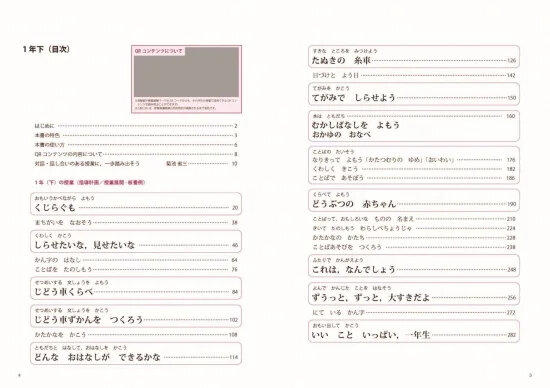 1年下(目次)
QRコンテンツについて
はじめに 2
本書の特色 3
本書の使い方 6
QRコンテンツの内容について 8
対話・話し合いのある授業に,一歩踏み出そう 菊池 省三 10
1年(下)の授業(指導計画/授業展開・板書例)
おもいうかべながら よもう
くじらぐも 20
まちがいを なおそう 38
くわしく かこう
しらせたいな,見せたいな 46
かん字の はなし 64
ことばを たのしもう 76
せつめいする 文しょうを よもう
じどう車くらべ 84
せつめいする 文しょうを かこう
じどう車ずかんを つくろう 102
かたかなを かこう 108
ともだちと はなして,おはなしを かこう
どんな おはなしが できるかな 114
4
すきな ところを みつけよう
たぬきの 糸車 126
日づけと よう日 142
てがみを かこう
てがみで しらせよう 150
本は ともだち 160
むかしばなしを よもう
おかゆの おなべ
ことばの たいそう
なりきって よもう(かたつむりの ゆめ/おいわい) 176
くわしく きこう 182
ことばで あそぼう 186
くらべて よもう
どうぶつの 赤ちゃん 190
ことばって,おもしろいな ものの 名まえ 210
きいて たのしもう わらしべちょうじゃ 224
かたかなの かたち 228
ことばあそびを つくろう 238
ふたりで かんがえよう
これは,なんでしょう 248
よんで かんじた ことを はなそう
ずうっと,ずっと,大すきだよ 256
にて いる かん字 272
おもい出して かこう
いい こと いっぱい,一年生 282
5